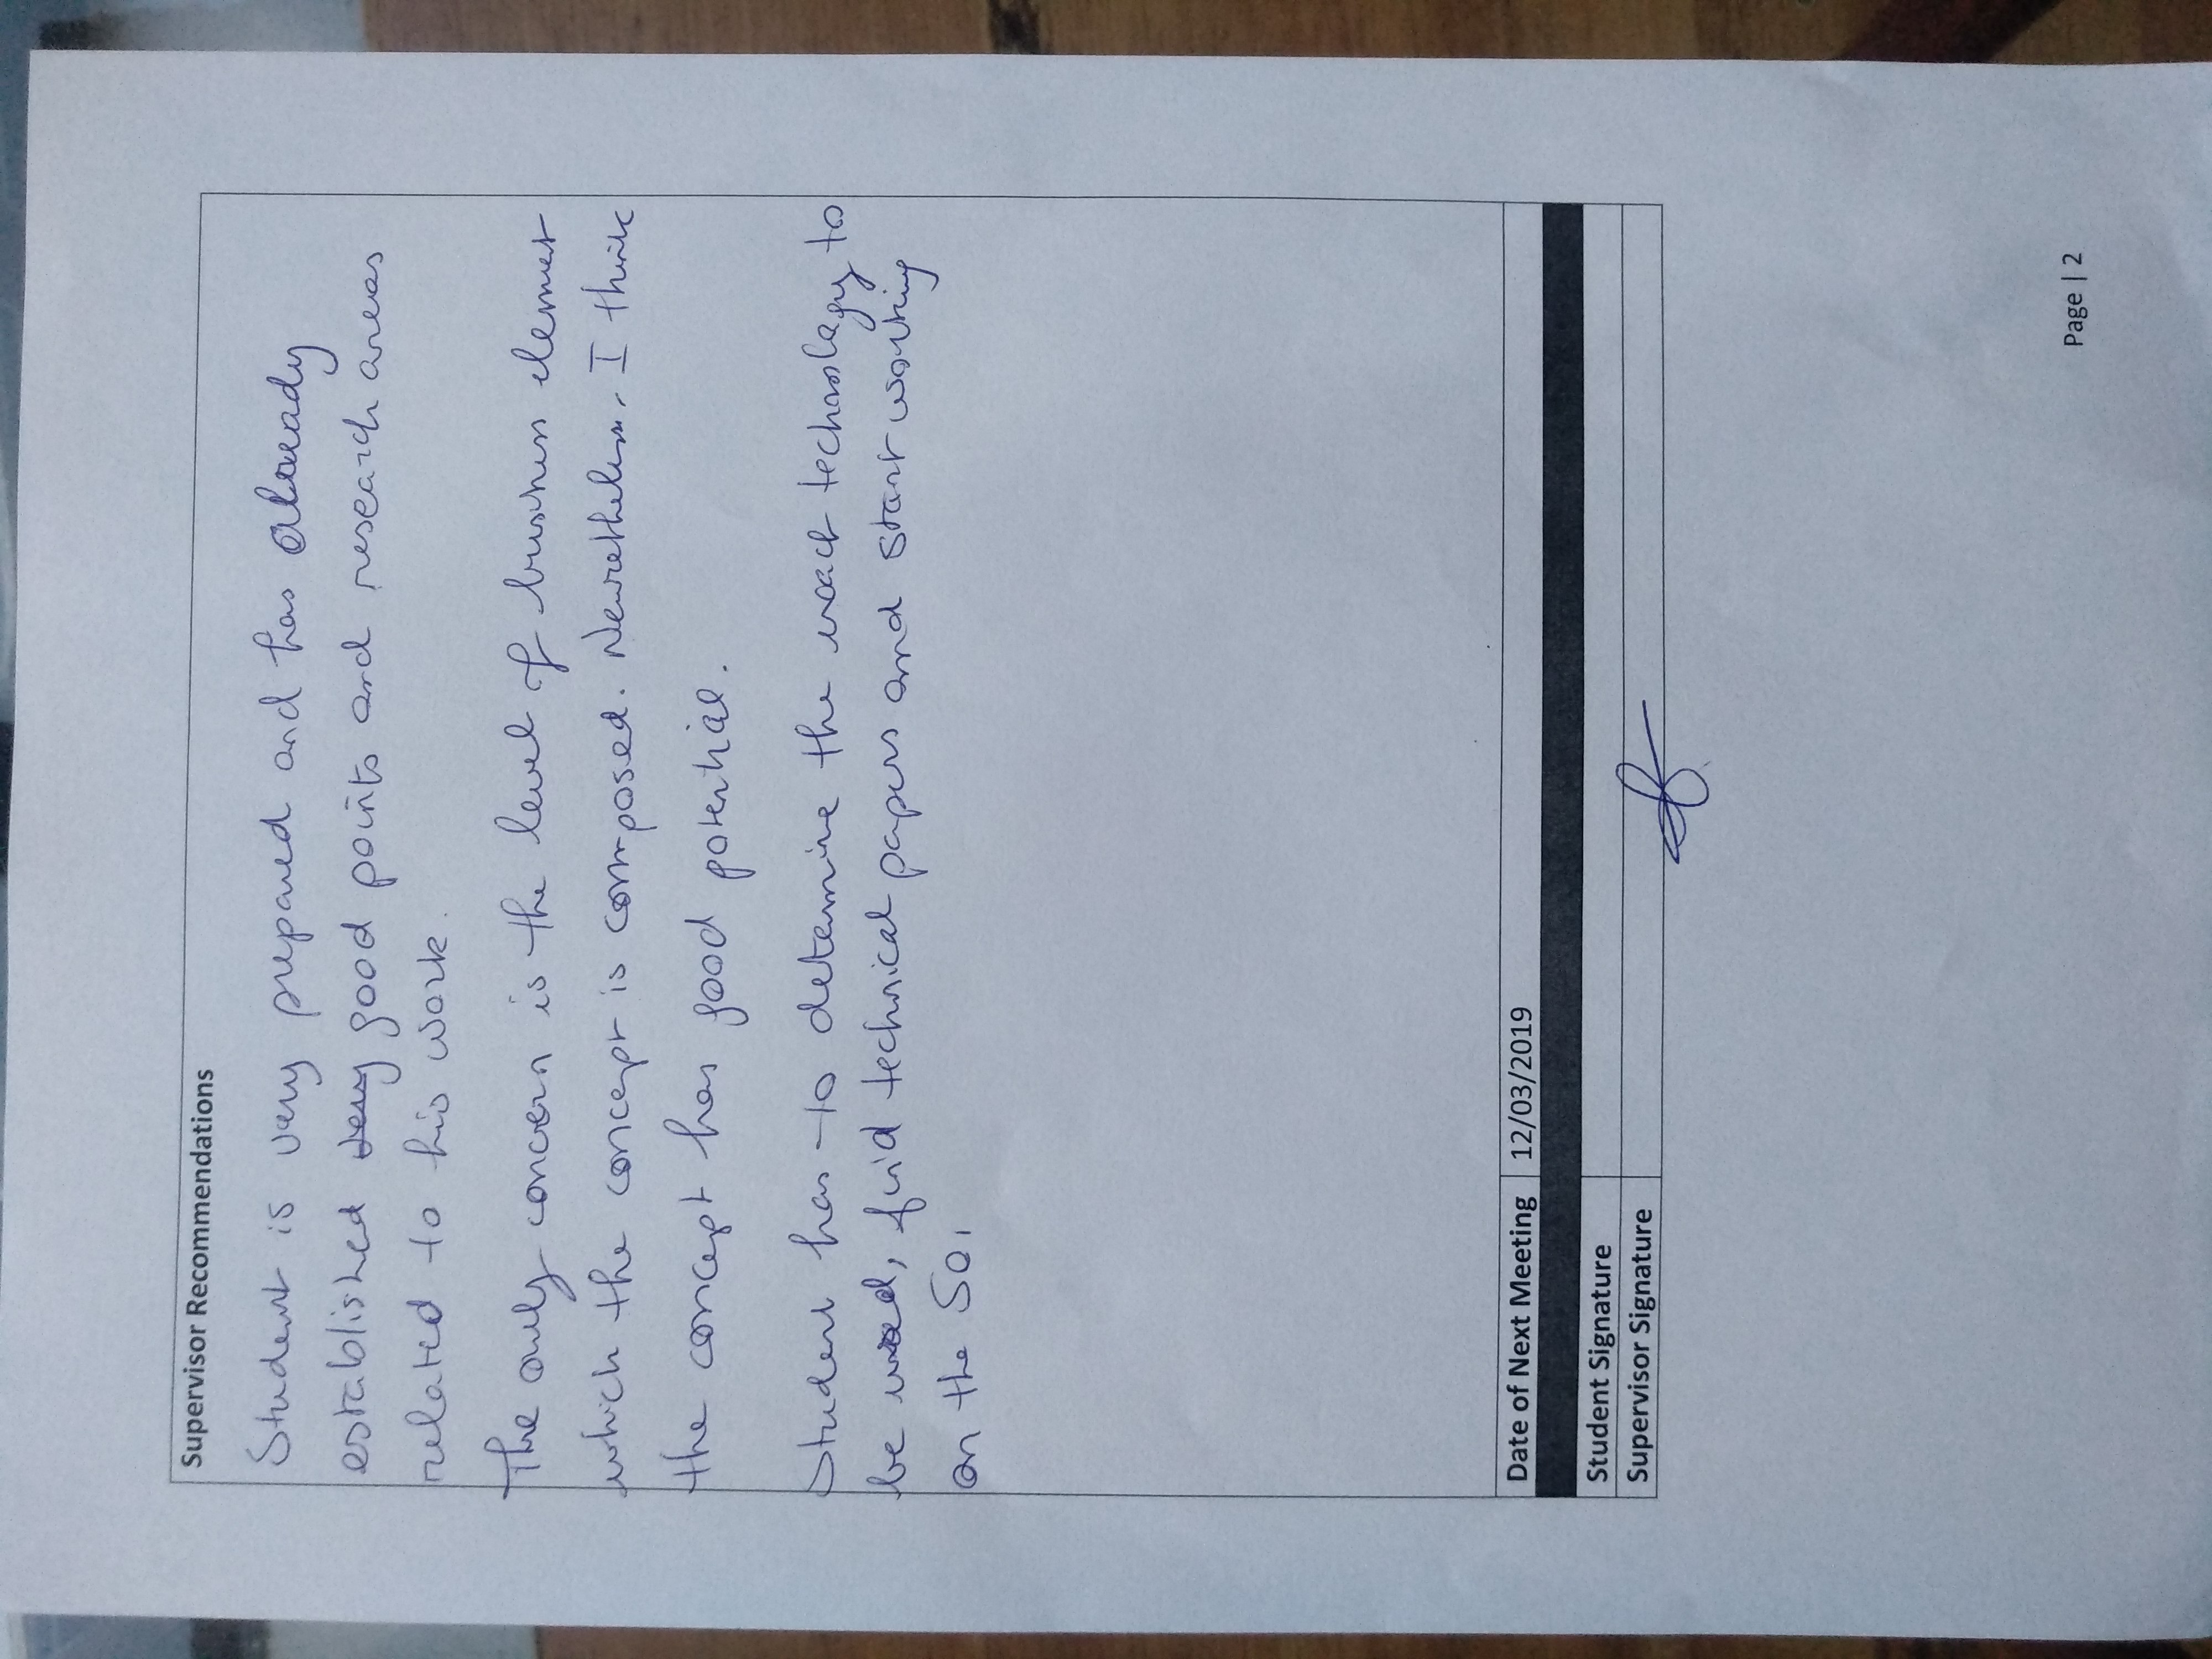 Supervisor Recommendations
Student is very prepared and has already
established very good points and research areas
related to his work.
The only concern is the level of business element
which the concept is composed. Nevertheless, I think
the concept has good potential.
Student has to determine the exact technology to
be used, find technical papers and start working
on the
Date of Next Meeting 12/03/2019
Student Signature
Supervisor Signature
Page | 2